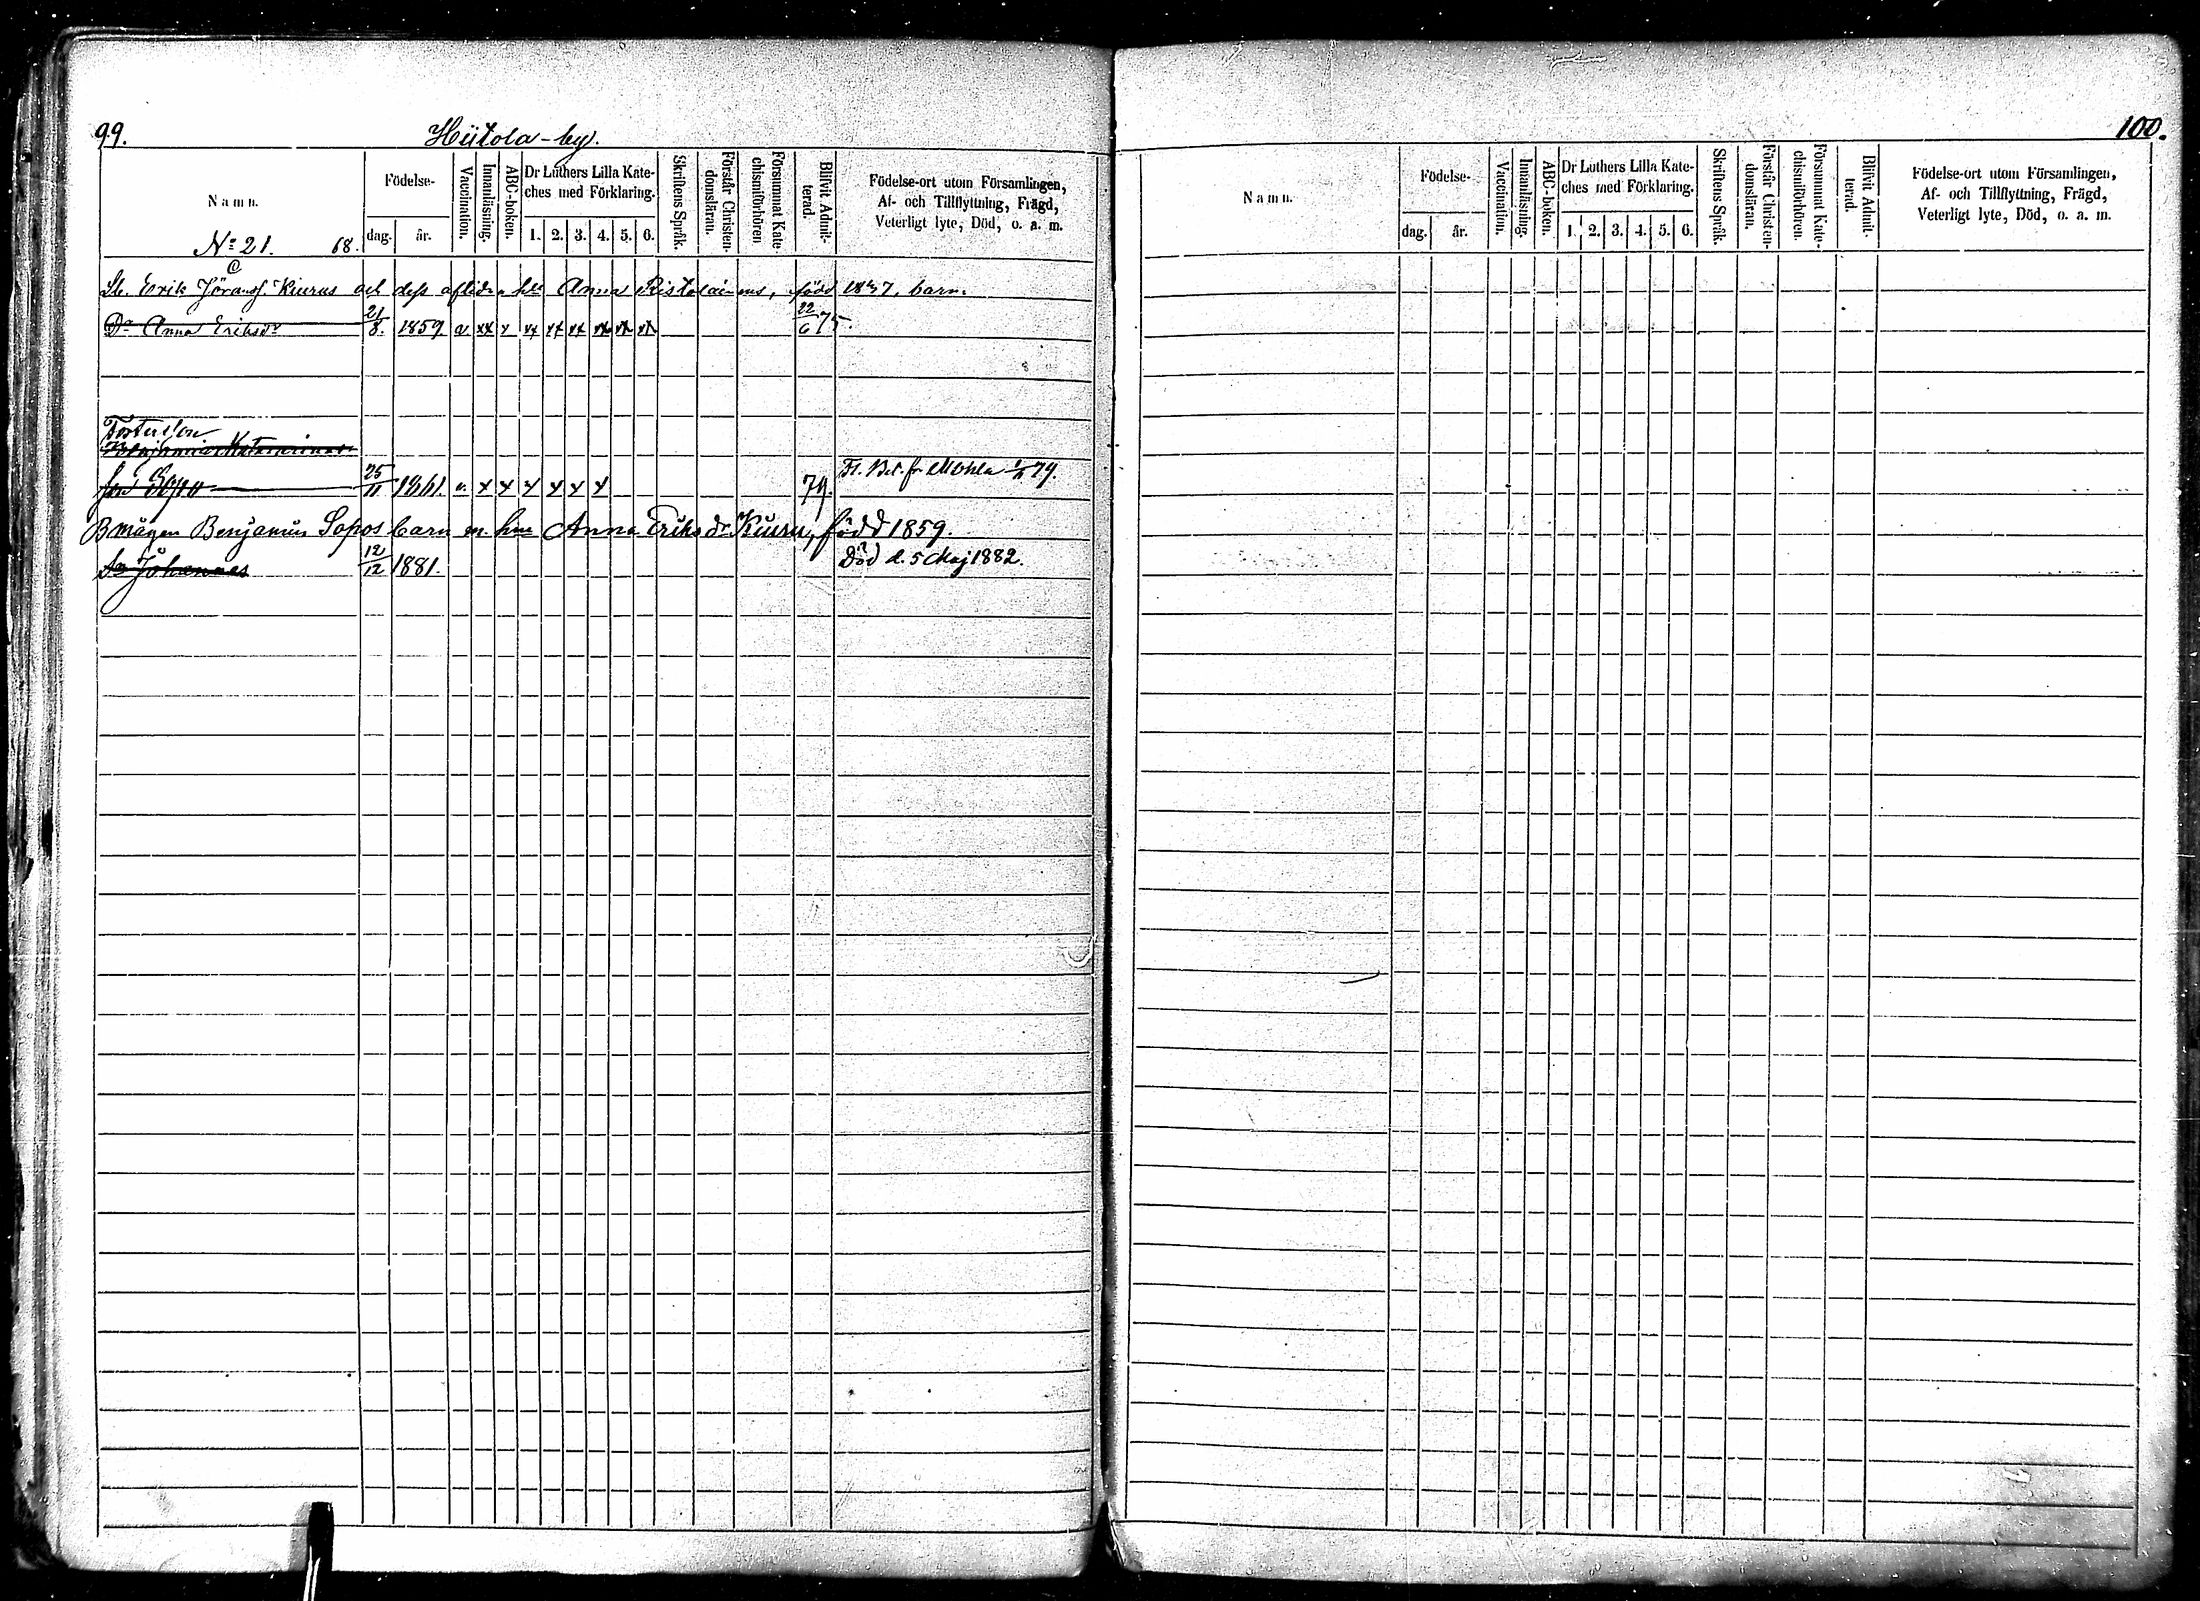 99.
Hiitola-by.
Namn.
Födelse-
dag.
år.
Vaccination.
Innanläsning.
ABC-boken.
Dr Luthers Lilla Kate-
ches med Förklaring.
1. 2. 3. 4. 5. 6.
Skriftens Språk.
Förstår Christen-
domsläran.
Försummat Kate-
chismiförhören
Blifvit Admit-
terad.
Födelse-ort utom Församlingen,
Af- och Tillflyttning, Frägd,
Veterligt lyte, Död, o. a. m.
No 21. 68.
Erik Göransf. Kiurus och dess aflidna h:u Anna Ristolainens, född 1837, barn.
Dr Anna Eriksdr 21/8. 1859 v xx x xx xx xx xx xx xx 22/6 75.
Fosterson
25/11 1861. v. x x x x x x 79. Fl. Bet. fr. Mohla 79.
Bmågen Benjamin Sopos barn m. hu Anna Eriksdr Kiuru, född 1859.
Sn Johannes 12/12 1881. Död d. 5 Maj 1882.
100.
Namn.
Födelse-
dag.
år.
Vaccination.
Innanläsning.
ABC-boken.
Dr Luthers Lilla Kate-
ches med Förklaring.
1. 2. 3. 4. 5. 6.
Skriftens Språk.
Förstår Christen-
domsläran.
Försummat Kate-
chismiförhören.
Blifvit Admit-
terad.
Födelse-ort utom Församlingen,
Af- och Tillflyttning, Frägd,
Veterligt lyte, Död, o. a. m.